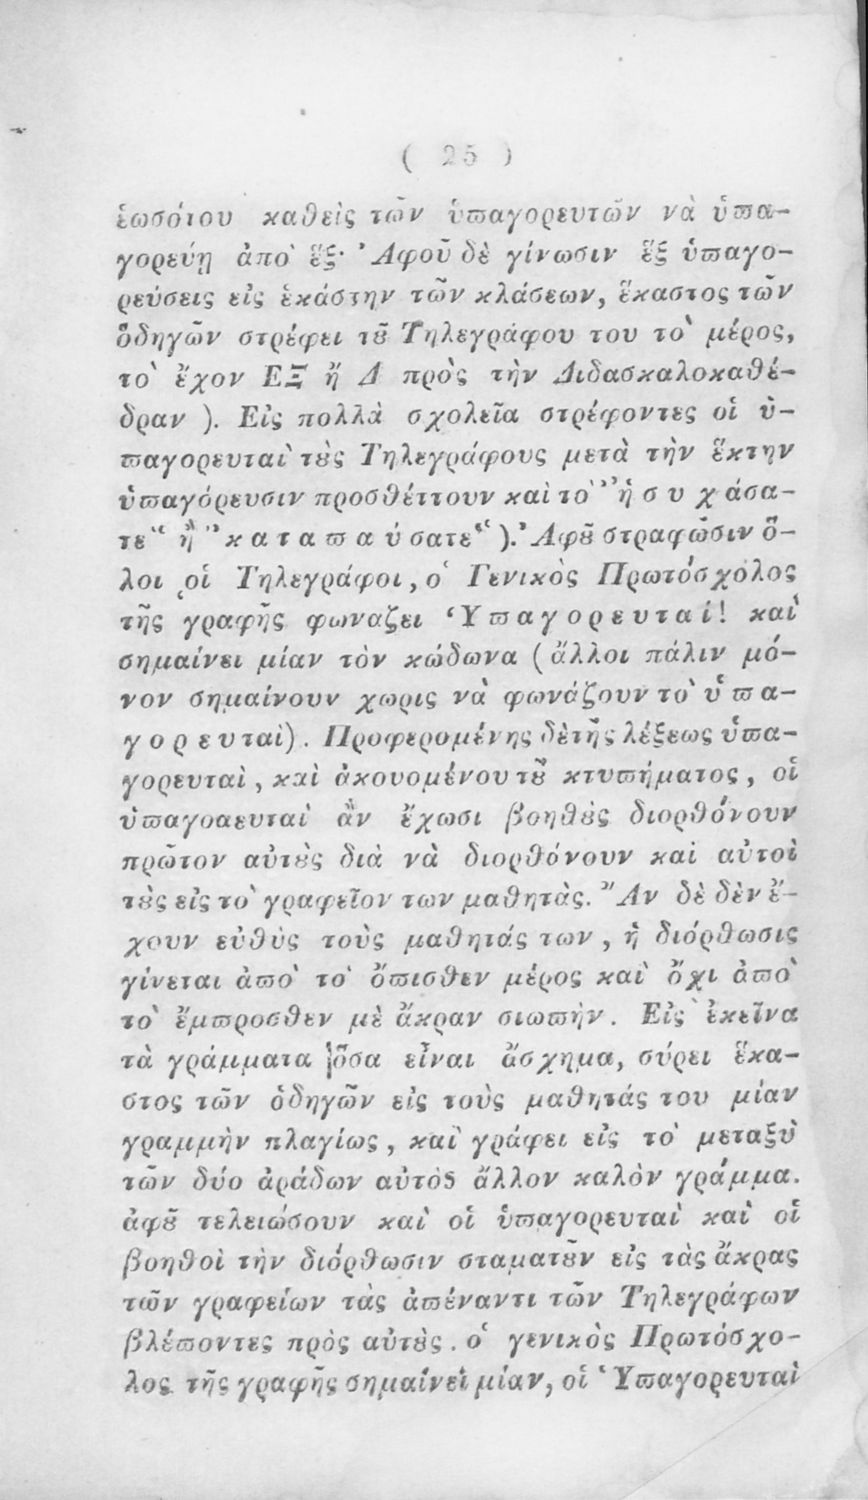 ( 25 )
ἑωσότου καθεὶς τῶν ὑπαγορευτῶν νὰ ὑπα-
γορεύῃ ἀπὸ ἕξ· Ἀφοῦ δὲ γίνωσιν ἕξ ὑπαγο-
ρεύσεις εἰς ἑκάστην τῶν κλάσεων, ἕκαστος τῶν
ὁδηγῶν στρέφει τȣ͂ Τηλεγράφου του τὸ μέρος,
τὸ ἔχον ΕΞ ἢ Δ πρὸς τὴν Διδασκαλοκαθέ-
δραν ). Εἰς πολλὰ σχολεῖα στρέφοντες οἱ ὑ-
παγορευταὶ τȣ̀ς Τηλεγράφους μετὰ τὴν ἕκτην
ὑπαγόρευσιν προσθέττουν καὶ τὸ ’’ἡ σ υ χ άσα-
τε‘‘ ἢ ’’κ α τ α π α ύ σατε‘‘ ). Ἀφȣ͂ στραφῶσιν ὅ-
λοι οἱ Τηλεγράφοι, ὁ Γενικὸς Πρωτόσχολος
τῆς γραφῆς φωναζει Ὑ π α γ ο ρ ε υ τ α ί ! καὶ
σημαίνει μίαν τὸν κώδωνα ( ἄλλοι πάλιν μό-
νον σημαίνουν χωρις νὰ φωνάζουν τὸ ὑ π α-
γ ο ρ ε υ ταὶ). Προφερομένης δὲ τῆς λέξεως ὑπα-
γορευταὶ, καὶ ἀκουομένου τȣ͂ κτυπήματος, οἱ
ὑπαγοαευταὶ ἂν ἔχωσι βοηθȣ̀ς διορθόνουν
πρῶτον αὐτȣ̀ς διὰ νὰ διορθόνουν καὶ αὐτοὶ
τȣ̀ς εἰς τὸ γραφεῖον των μαθητὰς. Ἂν δὲ δὲν ἔ-
χουν εὐθὺς τοὺς μαθητάς των, ἡ διόρθωσις
γίνεται ἀπὸ τὸ ὄπισθεν μέρος καὶ ὄχι ἀπὸ
τὸ ἔμπροσθεν μὲ ἄκραν σιωπὴν. Εἰς ἐκεῖνα
τὰ γράμματα ὅσα εἶναι ἄσχημα, σύρει ἕκα-
στος τῶν ὁδηγῶν εἰς τοὺς μαθητάς του μίαν
γραμμὴν πλαγίως, καὶ γράφει εἰς τὸ μεταξὺ
τῶν δύο ἀράδων αὐτὸς ἄλλον καλὸν γράμμα.
ἀφȣ͂ τελειώσουν καὶ οἱ ὑπαγορευταὶ καὶ οἱ
βοηθοὶ τὴν διόρθωσιν σταματȣ͂ν εἰς τὰς ἄκρας
τῶν γραφείων τὰς ἀπέναντι τῶν Τηλεγράφων
βλέποντες πρὸς αὐτȣ̀ς. ὁ γενικὸς Πρωτόσχο-
λος τῆς γραφῆς σημαίνει μίαν, οἱ Ὑπαγορευταὶ